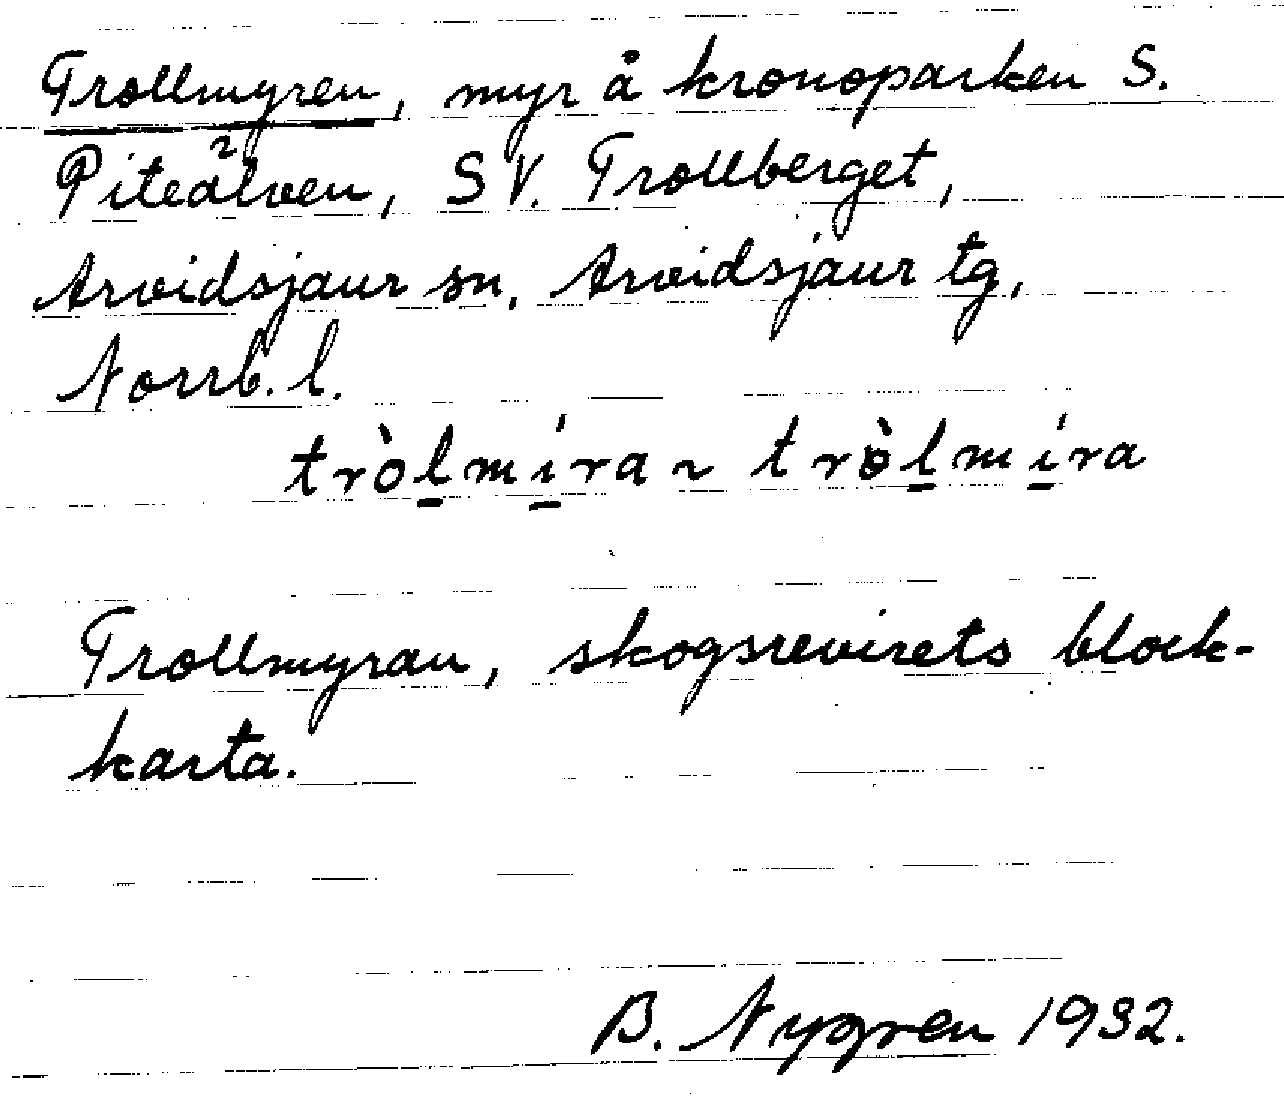 Trollmyren, myr å kronoparken S.
Piteälven, SV. Trollberget,
Arvidsjaur sn, Arvidsjaur tg,
Norrb. l.
tròl̲mí̲ra ~ trò̈l̲mí̲ra
Trollmyran, skogsrevirets block-
karta.
B. Nygren 1932.